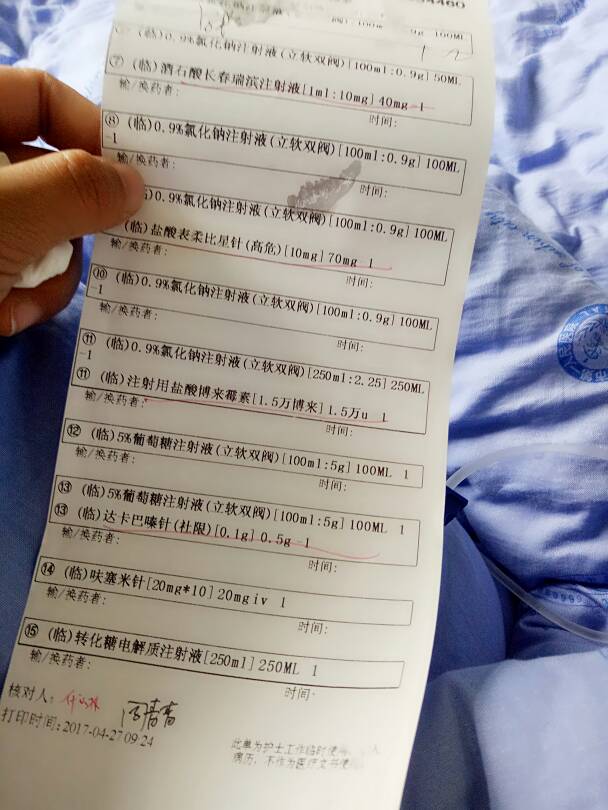 4460
⑦ (临)0.9%氯化钠注射液(立软双阀)[100ml:0.9g] 50ML
⑦ (临)酒石酸长春瑞滨注射液[1ml:10mg] 40mg 1
输/换药者: 时间:
⑧ (临)0.9%氯化钠注射液(立软双阀)[100ml:0.9g] 100ML
-1
输/换药者: 时间:
(临)0.9%氯化钠注射液(立软双阀)[100ml:0.9g] 100ML
(临)盐酸表柔比星针(高危)[10mg] 70mg 1
输/换药者: 时间:
⑩ (临)0.9%氯化钠注射液(立软双阀)[100ml:0.9g] 100ML
-1
输/换药者: 时间:
⑪ (临)0.9%氯化钠注射液(立软双阀)[250ml:2.25] 250ML
-1
⑪ (临)注射用盐酸博来霉素[1.5万博来] 1.5万u 1
输/换药者: 时间:
⑫ (临)5%葡萄糖注射液(立软双阀)[100ml:5g] 100ML 1
输/换药者: 时间:
⑬ (临)5%葡萄糖注射液(立软双阀)[100ml:5g] 100ML 1
⑬ (临)达卡巴嗪针(杜限)[0.1g] 0.5g 1
输/换药者: 时间:
⑭ (临)呋塞米针[20mg*10] 20mg iv 1
输/换药者: 时间:
⑮ (临)转化糖电解质注射液[250ml] 250ML 1
输/换药者: 时间:
核对人:
打印时间:2017-04-27 09:24
此单为护士工作临时使
病历,不作为医疗文书使